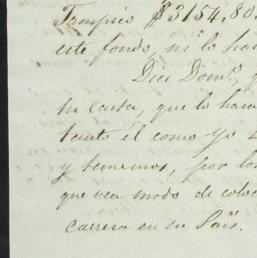 Tampico $3154,80
este fondo, ni lo ha
Dice Domº,
tu carta, que lo hara
tanto él como yo
y tenemos, por lo
que vea modo de coloc
carrera en su Pais.